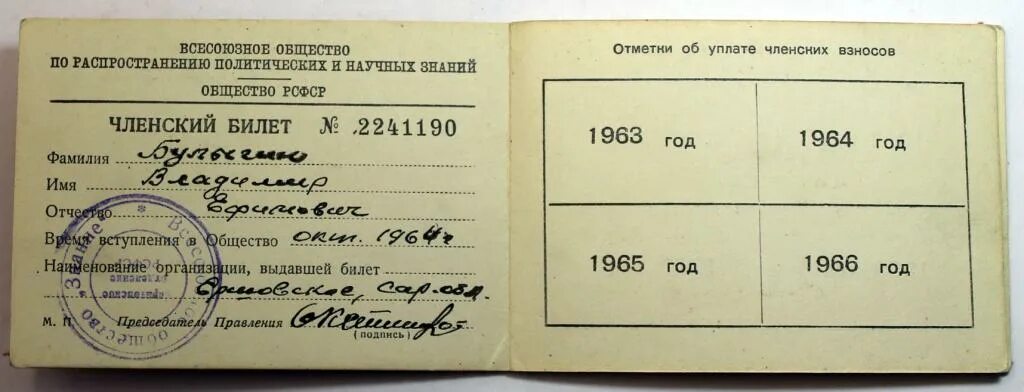 ВСЕСОЮЗНОЕ ОБЩЕСТВО
ПО РАСПРОСТРАНЕНИЮ ПОЛИТИЧЕСКИХ И НАУЧНЫХ ЗНАНИЙ
ОБЩЕСТВО РСФСР
ЧЛЕНСКИЙ БИЛЕТ № 2241190
Фамилия Булыгин
Имя Владимир
Отчество Ефимович
Время вступления в Общество окт. 1964 г
Наименование организации, выдавшей билет
Ершовское, Сар. обл.
М. П. Председатель Правления
(подпись)
* Всесоюзное общество "Знание"
РСФСР
отделение
Отметки об уплате членских взносов
1963 год
1964 год
1965 год
1966 год